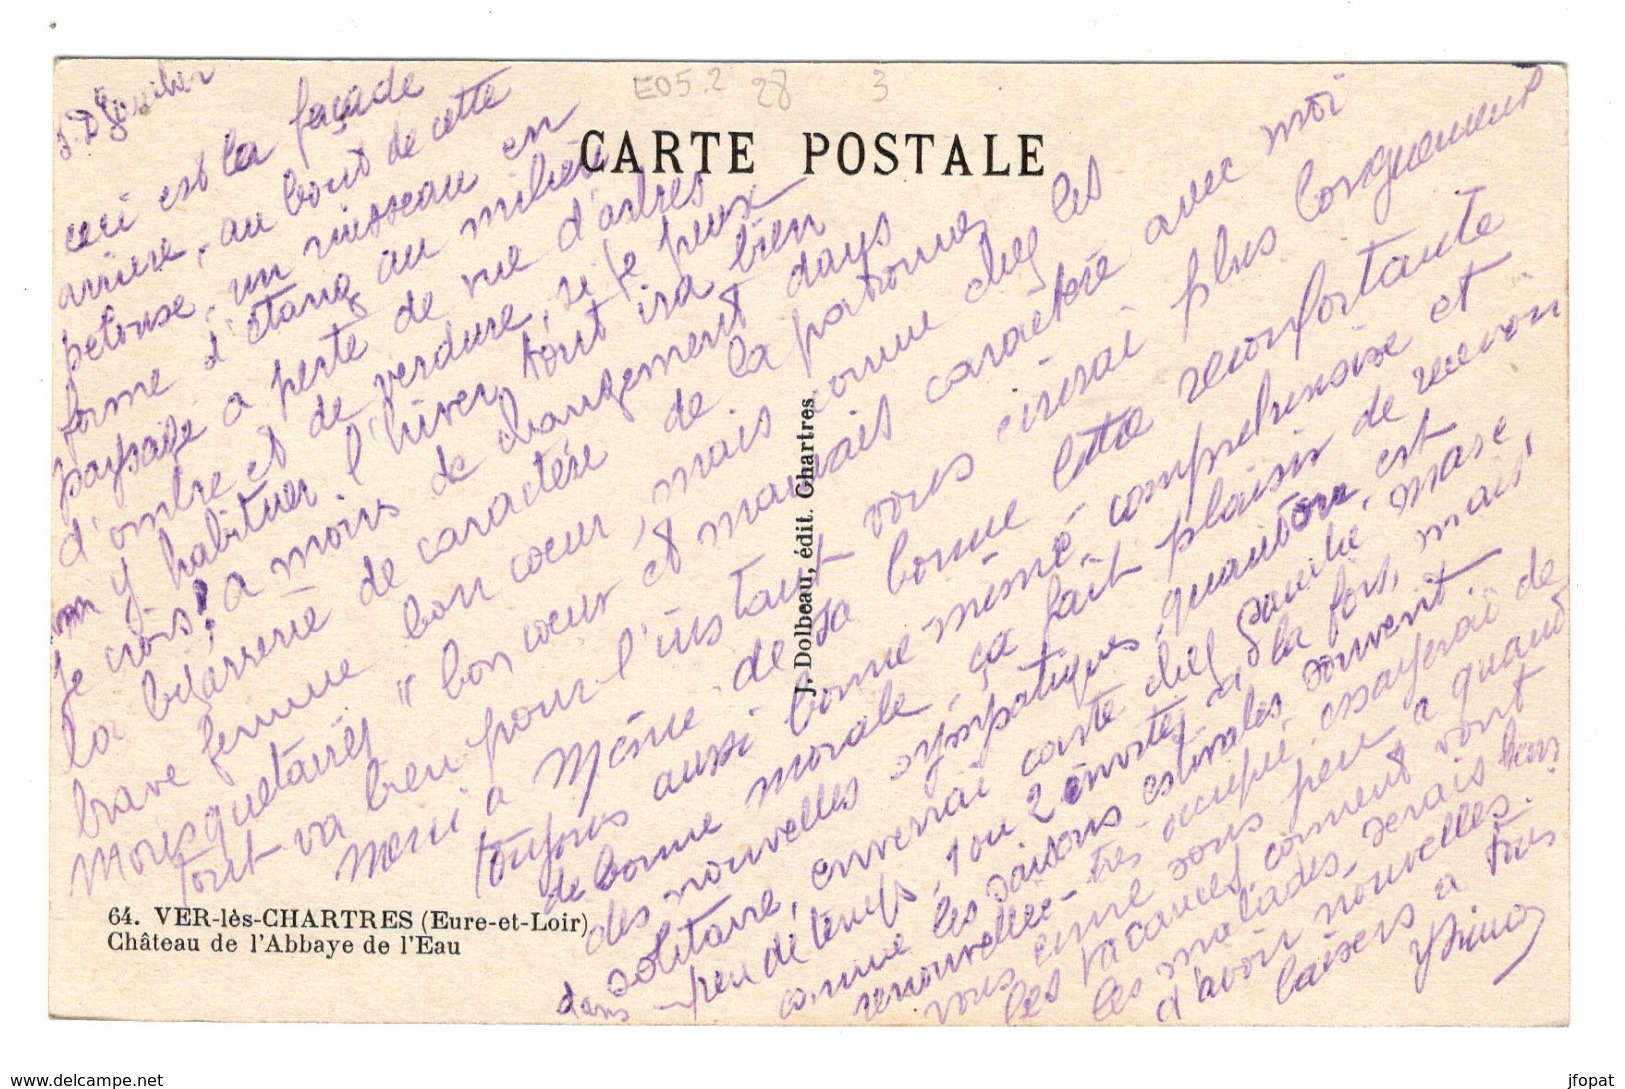 E05.2 28 3
CARTE POSTALE
ceci est la façade
arriere, au bout de cette
pelouse, un ruisseau en
forme d'étang au milieu
paysage a perte de vue d'arbres
d'ombre et de verdure, si je peux
m y habituer l'hiver, tout ira bien
je crois! a moins de changement dans
la bizarrerie de caractère de la patronne,
brave femme bon coeur, mais comme chez les
Mousquetaires "bon coeur et mauvais caractère avec moi
tout va bien pour l'instant vous écrirai plus longuement
Merci a Mémé de sa bonne lettre reconfortante
toujours aussi bonne mémé, comprehensive et
de bonne morale, ça fait plaisir de recevoir
des nouvelles sympatiques, quand on est
solitaire, enverrai carte chez
dans peu de temps, 1 ou 2 invités a la fois, mais
comme les saisons estivales souvent
renouvellée - très occupé, essayerai de
vous écrire sous peu, a quand
les vacances, comment vont
les malades, serais bien
d'avoir nouvelles.
baisers a tous
J. Dolbeau, édit. Chartres
64. VER-lès-CHARTRES (Eure-et-Loir)
Château de l'Abbaye de l'Eau
www.delcampe.net
jfopat